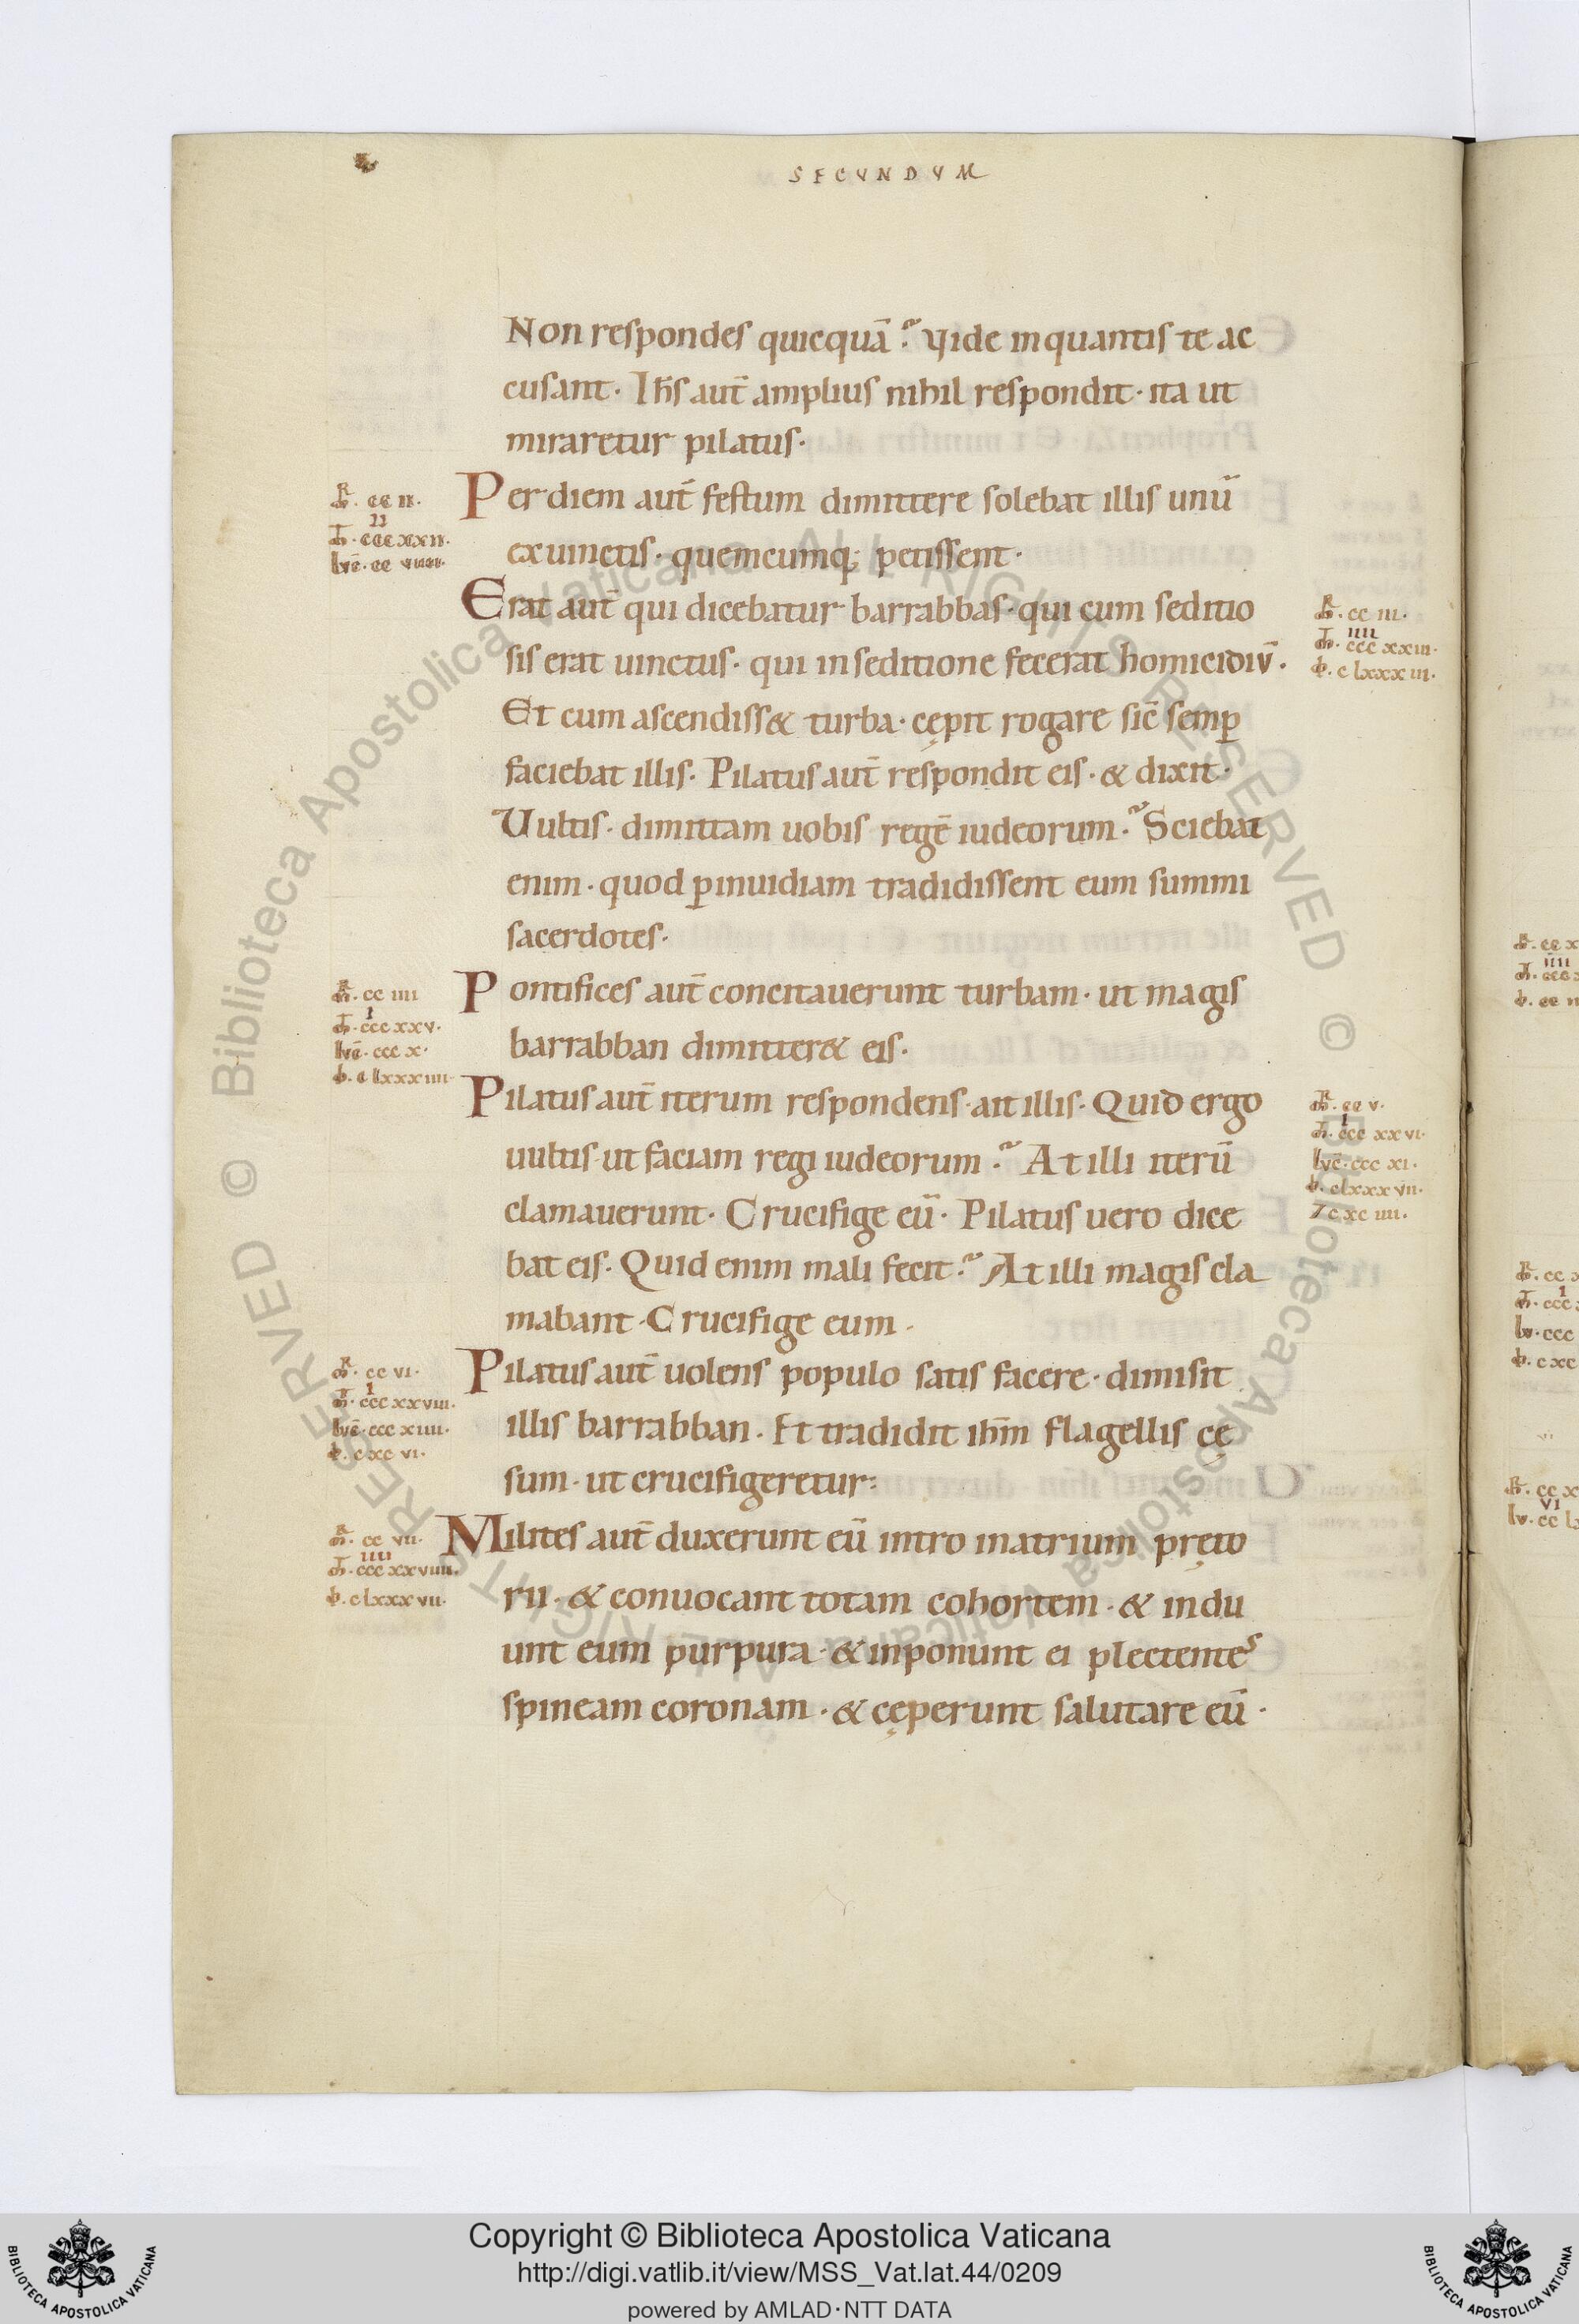 SECVNDVM
Non respondes quicquā? Vide inquantis te ac
cusant· Ihs̄ aut̄ amplius nihil respondit· ita ut
miraretur pilatus·
Per diem aut̄ festum dimittere solebat illis unū
ex uinctis· quemcumq; petissent·
Erat aut̄ qui dicebatur barrabbas· qui cum seditio
sis erat uinctus· qui in seditione fecerat homicidiv̄·
Et cum ascendiss& turba· cępit rogare sic̄ semꝑ
faciebat illis· Pilatus aut̄ respondit eis· & dixit·
Uultis· dimittam uobis regē iudeorum? Sciebat
enim· quod ꝑinuidiam tradidissent eum summi
sacerdotes·
Pontifices aut̄ concitauerunt turbam· ut magis
barrabban dimitter& eis·
Pilatus aut̄ iterum respondens· ait illis· Quid ergo
uultis ut faciam regi iudeorum? At illi iterū
clamauerunt· Crucifige eū· Pilatus uero dice
bat eis· Quid enim mali fecit? At illi magis cla
mabant· Crucifige eum·
Pilatus aut̄ uolens populo satis facere· dimisit
illis barrabban· Et tradidit ihm̄ flagellis cę
sum· ut crucifigeretur·
Milites aut̄ duxerunt eū intro inatrium pręto
rii· & conuocant totam cohortem· & indu
unt eum purpura· & inponunt ei plectentes
spineam coronam· & cęperunt salutare eū·
cc ii·
ii
ccc xx ii·
lvc̄· cc viiii·
cc iii·
iiii
ccc xx iii·
c lxxx iii·
cc iiii
i
ccc xx v·
lvc̄· ccc x·
c lxxx iiii
cc v·
i
ccc xx vi·
lvc̄· ccc xi·
c lxxx vii·
7 c xc iiii·
cc vi·
i
ccc xx viii·
lvc̄· ccc x iiii·
c xc vi·
cc vii·
iiii
ccc xx viiii·
c lxxx vii·
© Biblioteca Apostolica Vaticana ALL RIGHTS RESERVED
Copyright © Biblioteca Apostolica Vaticana
http://digi.vatlib.it/view/MSS_Vat.lat.44/0209
powered by AMLAD·NTT DATA
BIBLIOTECA APOSTOLICA VATICANA
BIBLIOTECA APOSTOLICA VATICANA